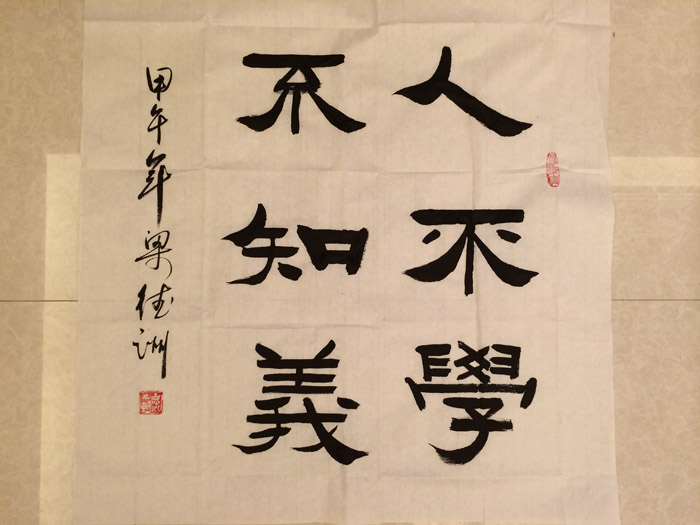 人不學
不知義
甲午年梁德洲